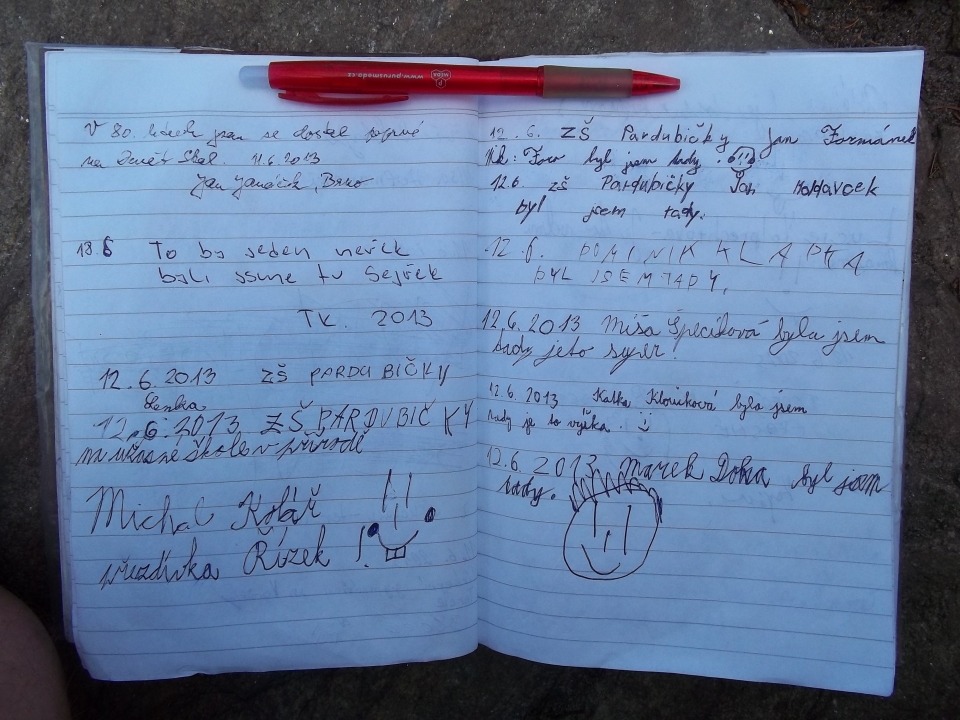 www.purusmeda.cz
V 80. letech jsem se dostal poprvé
na Devět Skal. 11.6.2013
Jan Janáčik, Brno
18.6 To by jeden neřek
byli jsme tu Sejřek
TK. 2013
12.6.2013 ZŠ PARDUBIČKY
Lenka
12.6.2013 ZŠ PARDUBIČKY
na úžasné škole v přírodě
Michal Kolář
přezdívka Řízek !
12.6. ZŠ Pardubičky Jan Formánek
byl jsem tady.
12.6. ZŠ Pardubičky Jan
byl jsem tady.
12.6. DOMINIK KLAPKA
BYL JSEM TADY.
12.6.2013 Míša Špeciková byla jsem
tady jeto supr!
12.6.2013 Katka Kloníková byla jsem
tady je to výška. :)
12.6.2013 Marek Doha byl jsem
tady.